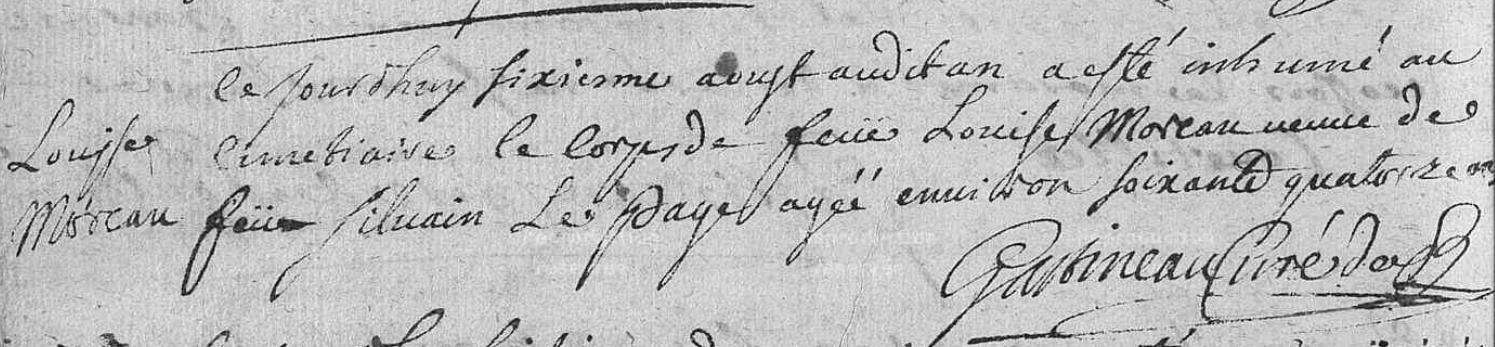 ce jourdhuy sixiesme aoust audit an a esté inhumé au
Louise cimetiaire le corps de feüe Louise Moreau veuve de
Moreau feüe silvain Le page agéé environ soixante quatorze ans
Gastineau Curé de